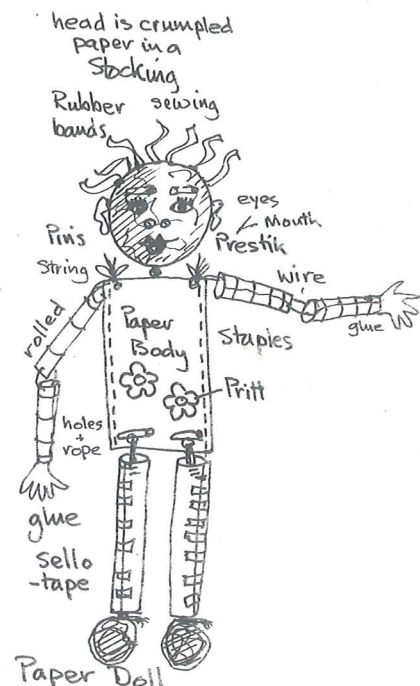 head is crumpled
paper in a
Stocking
Rubber sewing
bands
eyes
Mouth
Pins
Prestik
String
wire
rolled
Paper
Body
Staples
glue
Pritt
holes
+
rope
glue
Sello
-tape
Paper Doll